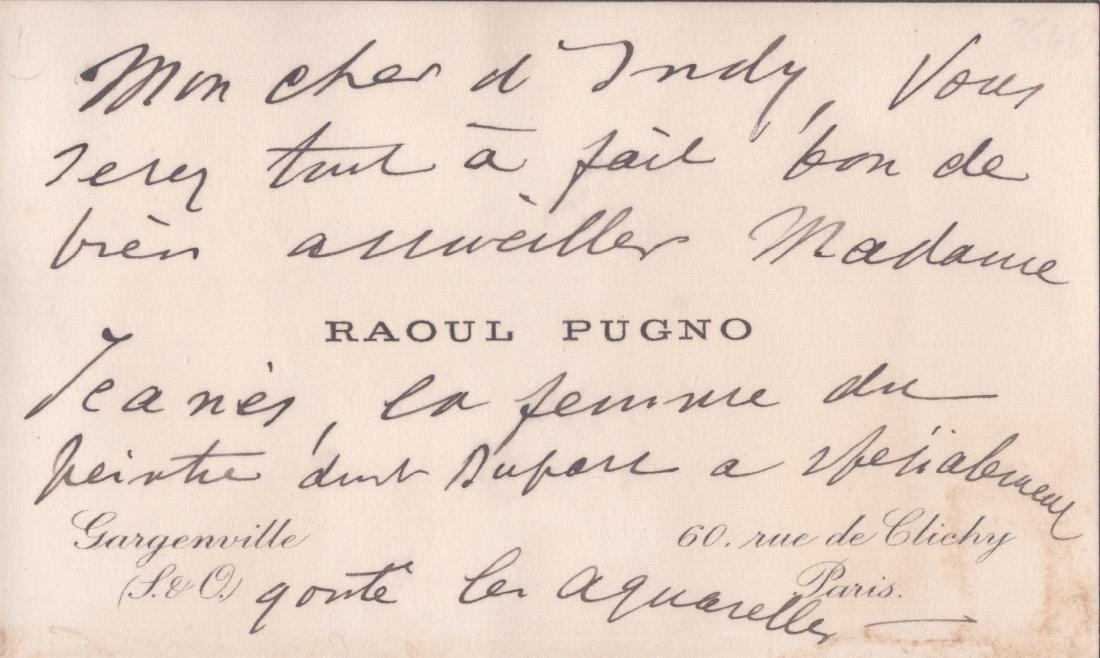 Mon cher d'Indy, Vous
serez tout à fait bon de
bien accueillir Madame
RAOUL PUGNO
Jeanès, la femme du
peintre dont Duparc a spécialement
Gargenville
60. rue de Clichy
(S. & O.)
Paris.
gouté les aquarelles —